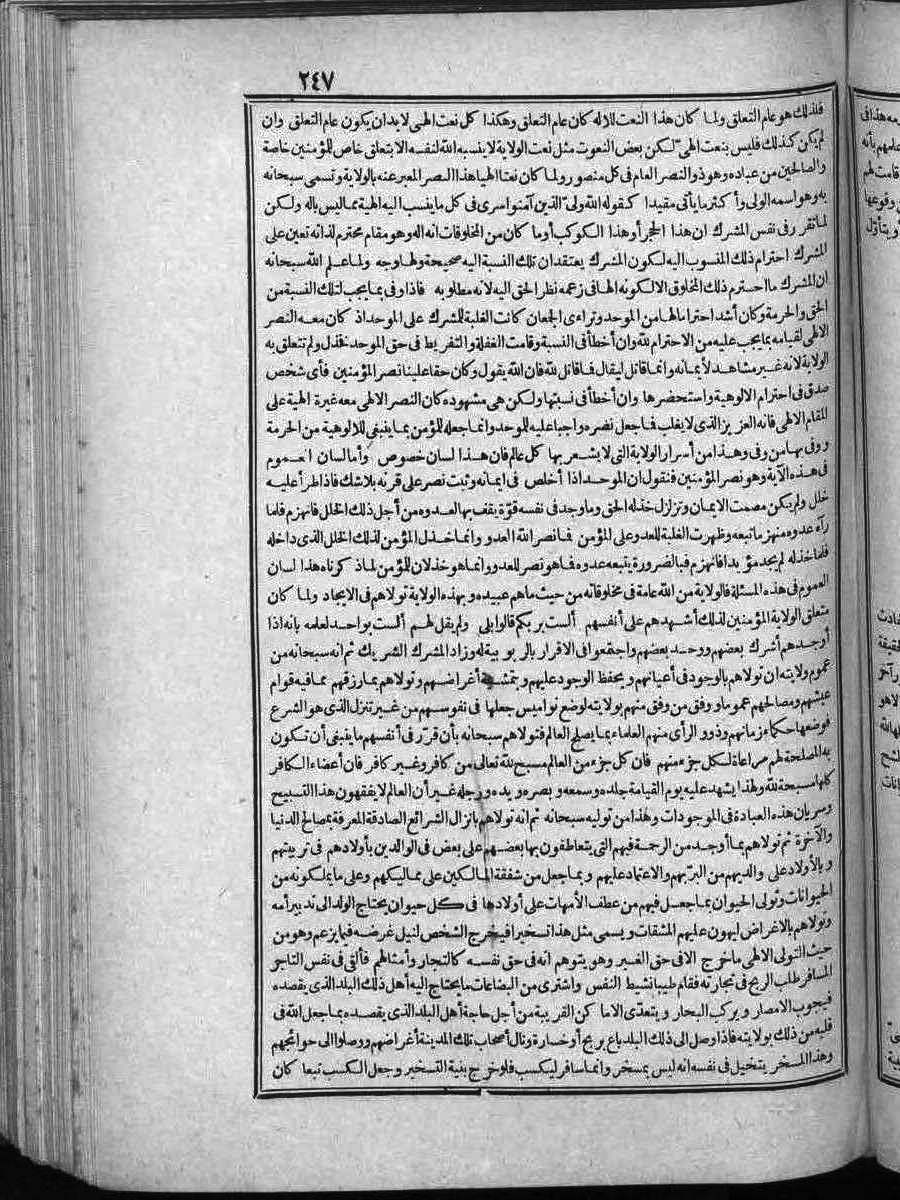 ٢٤٧
فلذلك هو عام التعلق ولما كان هذا النعت للاله كان عام التعلق وهكذا كل نعت الهى لابدان يكون عام التعلق وان
لم يكن كذلك فليس بنعت الهىّ لكن بعض النعوت مثل نعت الولاية لاينسبه الله لنفسه الابتعلق خاص للمؤمنين خاصة
والصالحين من عباده وهو ذو النصر العام فى كل منصور ولما كان نعتا الهيا هذا النصر المعبر عنه بالولاية وتسمى سبحانه
به وهو اسمه الولى وأكثر ما يأتى مقيدا كقوله الله ولىّ الذين آمنوا سرى فى كل ما ينسب اليه الهية مماليس باله ولكن
لما تقرر فى نفس المشرك ان هذا الحجر أو هذا الكوكب أو ما كان من المخلوقات انه اله وهو مقام محترم لذاته تعين على
المشرك احترام ذلك المنسوب اليه لكون المشرك يعتقد ان تلك النسبة اليه صحيحة ولها وجه ولما علم الله سبحانه
ان المشرك ما احترم ذلك المخلوق الا لكونه الها فى زعمه نظر الحق اليه لانه مطلوبه فاذا وفى بما يجب لتلك النسبة من
الحق والحرمة وكان أشد احتراما لها من الموحد وتراءى الجمعان كانت الغلبة للمشرك على الموحد اذ كان معه النصر
الالهى لقيامه بما يجب عليه من الاحترام لله وان أخطأ فى النسبة وقامت الغفلة والتفريط فى حق الموحد نفذل ولم تتعلق به
الولاية لانه غير مشاهد لأيمانه وانما قاتل ليقال فما قاتل لله فان الله يقول وكان حقا علينا نصر المؤمنين فأى شخص
صدق فى احترام الالوهية واستحضرها وان أخطأ فى نسبتها ولكن هى مشهوده كان النصر الالهى معه غيرة الهية على
المقام الالهى فانه العزيز الذى لايغلب فما جعل نصره واجبا عليه للموحد وانما جعله للمؤمن بما ينبغى للالوهية من الحرمة
ووفى بها من وفى وهذا من أسرار الولاية التى لايشعر بها كل عالم فان هذا لسان خصوص وأما لسان العموم
فى هذه الآية وهو نصر المؤمنين فنقول ان الموحد اذا أخلص فى ايمانه وثبت نصر على قرنه بلاشك فاذا طرأ عليه
خلل ولم يكن مصمت الايمان وتزلزل خذله الحق وما وجد فى نفسه قوّة يقف بها لعدوه من أجل ذلك الخلل فانهزم فلما
رآه عدوه منهزما تبعه وظهرت الغلبة للعدو على المؤمن فما نصر الله العدو وانما خذل المؤمن لذلك الخلل الذى داخله
فلما خذله لم يجد مؤيدا فانهزم فبالضرورة يتبعه عدوه فما هو نصر للعدو وانما هو خذلان للمؤمن لما ذكرناه هذا لسان
العموم فى هذه المسئلة فالولاية من الله عامة فى مخلوقاته من حيث ماهم عبيده وبهذه الولاية تولاهم فى الايجاد ولما كان
متعلق الولاية المؤمنين لذلك أشهدهم على أنفسهم ألست بربكم قالوا بلى ولم يقل لهم ألست بواحد لعلمه بانه اذا
أوجدهم أشرك بعضهم ووحد بعضهم واجتمعوا فى الاقرار بالربوبية له وزاد المشرك الشريك ثم انه سبحانه من
عموم ولايته ان تولاهم بالوجود فى أعيانهم وبحفظ الوجود عليهم وبتمشية أغراضهم وتولاهم بما رزقهم مما فيه قوام
عيشهم ومصالحهم عموما ووفق من وفق منهم بولايته لوضع نواميس جعلها فى نفوسهم من غير تنزل الذى هو الشرع
فوضعها حكماء زمانهم وذوو الرأى منهم العلماء بما يصلح العالم فتولاهم سبحانه بأن قرّر فى أنفسهم ما ينبغى أن تكون
به المصلحة لهم مراعاة لكل جزء منهم فان كل جزء من العالم مسبح لله تعالى من كافر وغير كافر فان أعضاء الكافر
كلها مسبحة لله ولهذا يشهد عليه يوم القيامة جلده وسمعه وبصره ويده ورجله غير أن العالم لايفقهون هذا التسبيح
وسريان هذه العبادة فى الموجودات وهذا من توليه سبحانه ثم انه تولاهم بانزال الشرائع الصادقة المعرفة بمصالح الدنيا
والآخرة ثم تولاهم بما أوجد من الرحمة فيهم التى يتعاطفون بها بعضهم على بعض فى الوالدين بأولادهم فى تربيتهم
وبالأولاد على والديهم من البرّ بهم والاعتماد عليهم وبما جعل من شفقة المالكين على مماليكهم وعلى ما يملكونه من
الحيوانات وتولى الحيوان بما جعل فيهم من عطف الأمهات على أولادها فى كل حيوان يحتاج الولد الى تدبير أمه
وتولاهم بالاغراض ليهون عليهم المشقات ويسمى مثل هذا تسخيرا فيخرج الشخص لنيل غرضه فيما يزعم وهو من
حيث التولى الالهى ما خرج الا فى حق الغير وهو يتوهم انه فى حق نفسه كالتجار وأمثالهم فألقى فى نفس التاجر
المسافر طلب الربح فى تجارته فقام طيبا نشيط النفس واشترى من البضاعات ما يحتاج اليه أهل ذلك البلد الذى يقصده
فيجوب الامصار ويركب البحار ويتعدّى الاماكن القريبة من أجل حاجة أهل البلد الذى يقصده بما جعل الله فى
قلبه من ذلك بولايته فاذا وصل الى ذلك البلد باع بربح أو خسارة ونال أصحاب تلك المدينة أغراضهم ووصلوا الى حوائجهم
وهذا المسخر يتخيل فى نفسه انه ليس بمسخر وانما سافر ليكسب فلو خرج بنية التسخير وجعل الكسب تبعا كان